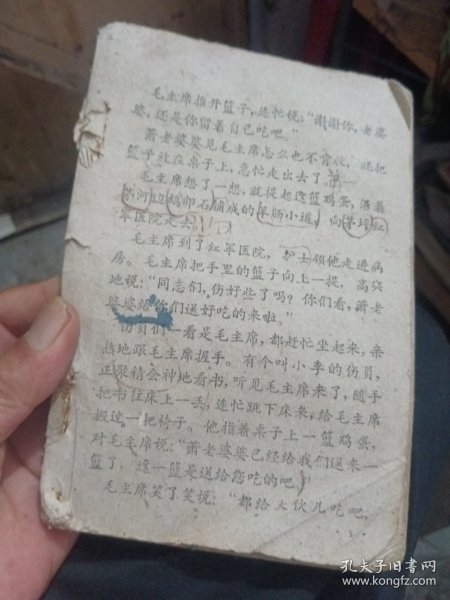 毛主席推开篮子，连忙说：“谢谢你，老婆
婆，还是你留着自己吃吧。”
萧老婆婆见毛主席怎么也不肯收，还把
篮子放在桌子上，急忙走出去了。
毛主席想了一想，就提起这篮鸡蛋，沿着
茅河边鹅卵石铺成的羊肠小道，向茅坪红
军医院走去。
毛主席到了红军医院，护士领他走进病
房。毛主席把手里的篮子向上一提，高兴
地说：“同志们，伤好些了吗？你们看，萧老
婆婆给你们送好吃的来啦。”
伤员们一看是毛主席，都赶忙坐起来，亲
热地跟毛主席握手。有个叫小李的伤员，
正聚精会神地看书，听见毛主席来了，随手
把书往床上一丢，连忙跳下床来，给毛主席
搬过一把椅子。他指着桌子上一篮鸡蛋，
对毛主席说：“萧老婆婆已经给我们送来一
篮了，这一篮是送给您吃的吧。”
毛主席笑了笑说：“都给大伙儿吃吧，
孔夫子旧书网
www.kongfz.com